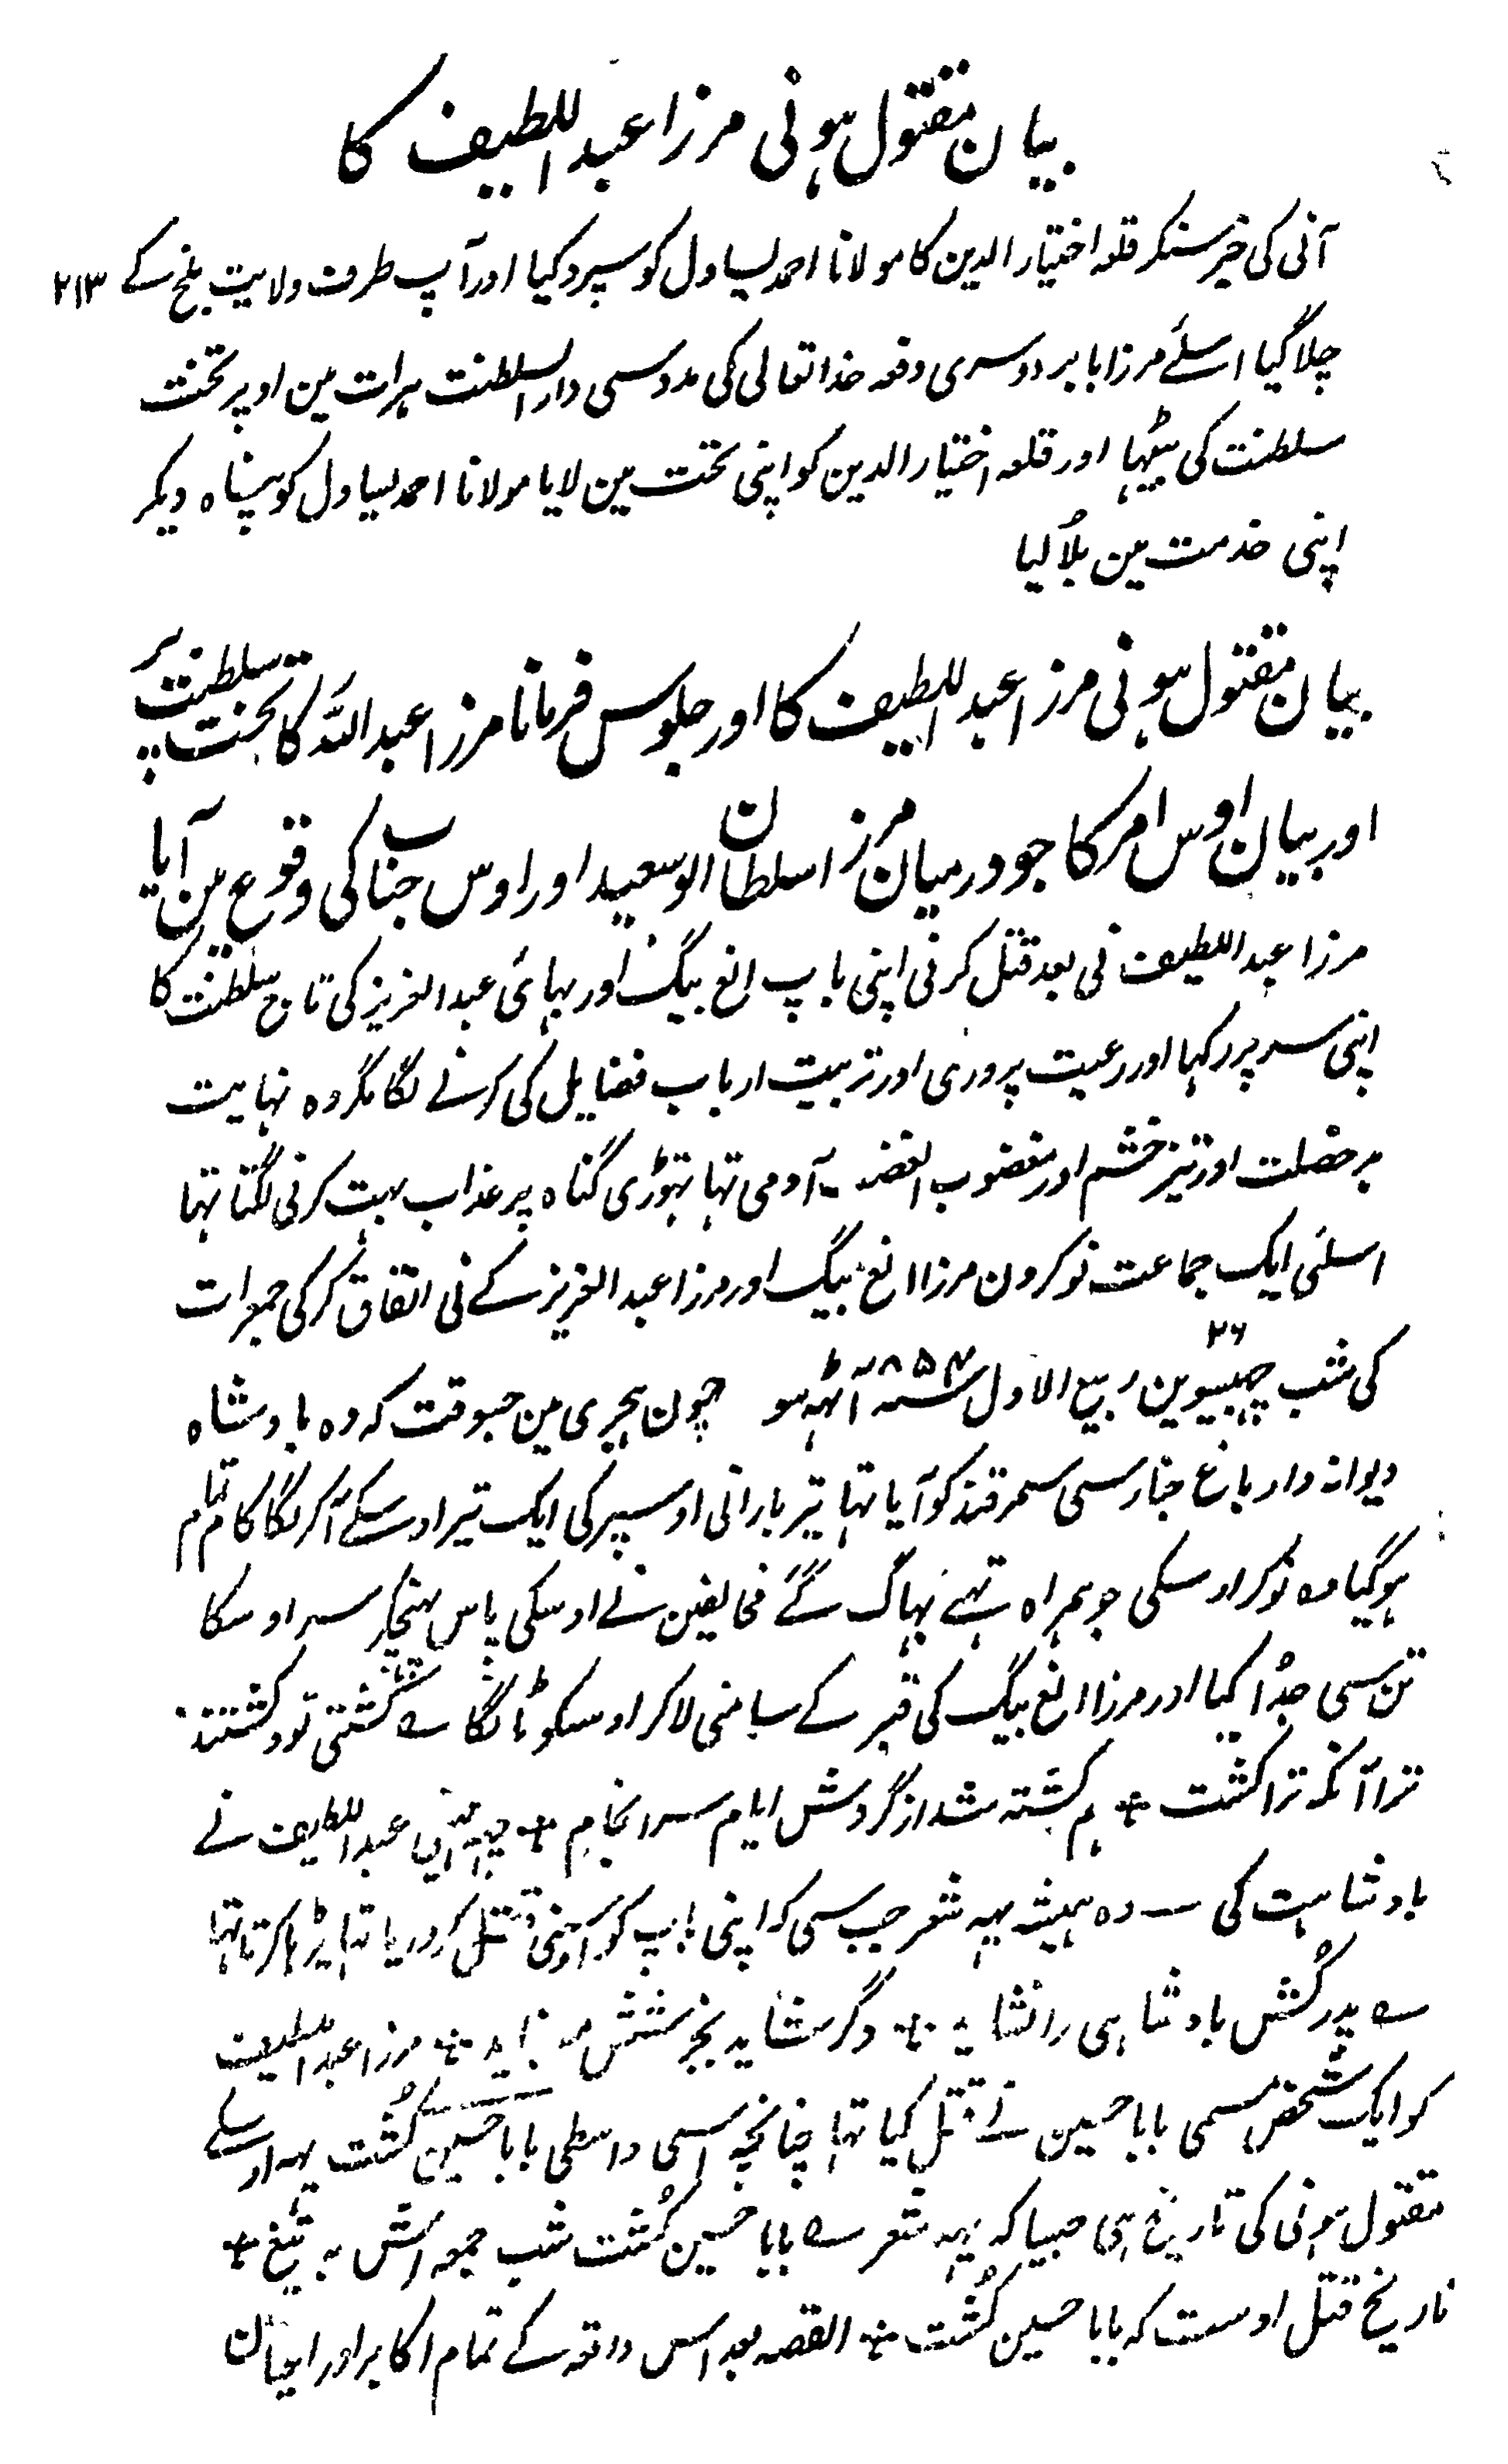 بیان مقتول ہونی مرزا عبداللطیف کا
آنی کی خبر سنکر قلعہ اختیار الدین کا مولانا احمد یساول کو سپرد کیا اور آپ طرف ولایت بلخ کے ۲۱۳
چلا گیا اسلئے مرزا بابر دوسری دفعہ خدا تعالی کی مدد سی دار السلطنت ہرات مین اوپر تخت
سلطنت کی بیٹہا اور قلعہ اختیار الدین کو اپنی تحت مین لایا مولانا احمد یساول کو پناہ دیکر
اپنی خدمت مین بلُا لیا
بیان مقتول ہونی مرزا عبداللطیف کا اور جلوس فرمانا مرزا عبداللہ کا تخت سلطنت پر
اور بیان اوس امر کا جو درمیان مرزا سلطان ابوسعید اور اوس جناب کی وقوع مین آیا
مرزا عبداللطیف نی بعد قتل کرنی اپنی باپ الغ بیگ اور بہائی عبدالعزیز کی تاج سلطنت کا
اپنی سر پر رکہا اور رعیت پروری اور تربیت ارباب فضایل کی کرنے لگا مگر وہ نہایت
بد خصلت اور تیز خشم اور مغضوب الغضب آدمی تہا تہوڑی گناہ پر عذاب بہت کرنی لگتا تہا
اسلئی ایک جماعت نوکرون مرزا الغ بیگ اور مرزا عبدالعزیز کے نی اتفاق کر کی جمعرات
کی شب چہبیسوین ۲۶ ربیع الاول سنہ ۸۵۴ آٹہہ سو چون ہجری مین جسوقت کہ وہ بادشاہ
دیوانہ وار باغ چنار سی سمرقند کو آیا تہا تیر بارانی اوسپر کی ایک تیر اوسکے آکر لگا کام تمام
ہوگیا وہ نوکر اوسکی جو ہمراہ تہے بہاگ گئے مخالفین نے اوسکی پاس پہنچکر سر اوسکا
تن سی جدُا کیا اور مرزا الغ بیگ کی قبر کے سامنی لاکر اوسکو ٹانگا ؎ کُشتی تو و کشتند
ترا آنکہ ترا کشت ٭ ہم کشتہ شد از گردش ایام سرانجام ٭ چہہ مہینی عبداللطیف نے
بادشاہت کی وہ ہمیشہ یہہ شعر جب سی کہ اپنی باپ کو اوسنی قتل کروریا تہا پڑہا کرتا تہا
؎ پدر کُش بادشاہی را نشاید ٭ وگر شاید بجز شش مہ نپاید ٭ مرزا عبداللطیف
کو ایک شخص مسمی بابا حسین نے قتل کیا تہا چنانچہ اسی واسطی بابا حسین کُشت یہہ اوسکے
مقتول ہونی کی تاریخ ہی جیسا کہ یہہ شعر ؎ بابا حسین کُشت شب جمعہ اش بہ تیغ ٭
تاریخ قتل اوست کہ بابا حسین کُشت ٭ القصہ بعد اس واقعہ کے تمام اکابر اور اعیان